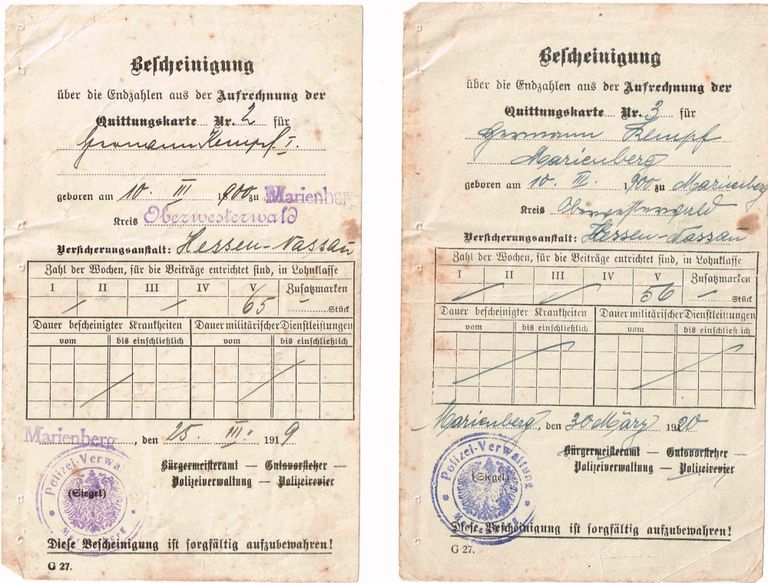 Bescheinigung
über die Endzahlen aus der Aufrechnung der
Quittungskarte Nr. 2 für
Hermann Kempf I.
geboren am 10. III 1900 zu Marienberg
Kreis Oberwesterwald
Versicherungsanstalt: Hessen-Nassau
Zahl der Wochen, für die Beiträge entrichtet sind, in Lohnklasse
I II III IV V Zusatzmarken
65 Stück
Dauer bescheinigter Krankheiten Dauer militärischer Dienstleistungen
vom bis einschließlich vom bis einschließlich
Marienberg, den 25. III. 1919
Bürgermeisteramt — Gutsvorsteher —
Polizeiverwaltung — Polizeirevier
Polizei-Verwaltung
(Siegel)
Diese Bescheinigung ist sorgfältig aufzubewahren!
G 27.
Bescheinigung
über die Endzahlen aus der Aufrechnung der
Quittungskarte Nr. 3 für
Hermann Kempf
Marienberg
geboren am 10. III. 1900 zu Marienberg
Kreis Oberwesterwald
Versicherungsanstalt: Hessen-Nassau
Zahl der Wochen, für die Beiträge entrichtet sind, in Lohnklasse
I II III IV V Zusatzmarken
56 Stück
Dauer bescheinigter Krankheiten Dauer militärischer Dienstleistungen
vom bis einschließlich vom bis einschließlich
Marienberg, den 30 März 1920
Bürgermeisteramt — Gutsvorsteher —
Polizeiverwaltung — Polizeirevier
Polizei-Verwaltung
(Siegel)
Diese Bescheinigung ist sorgfältig aufzubewahren!
G 27.